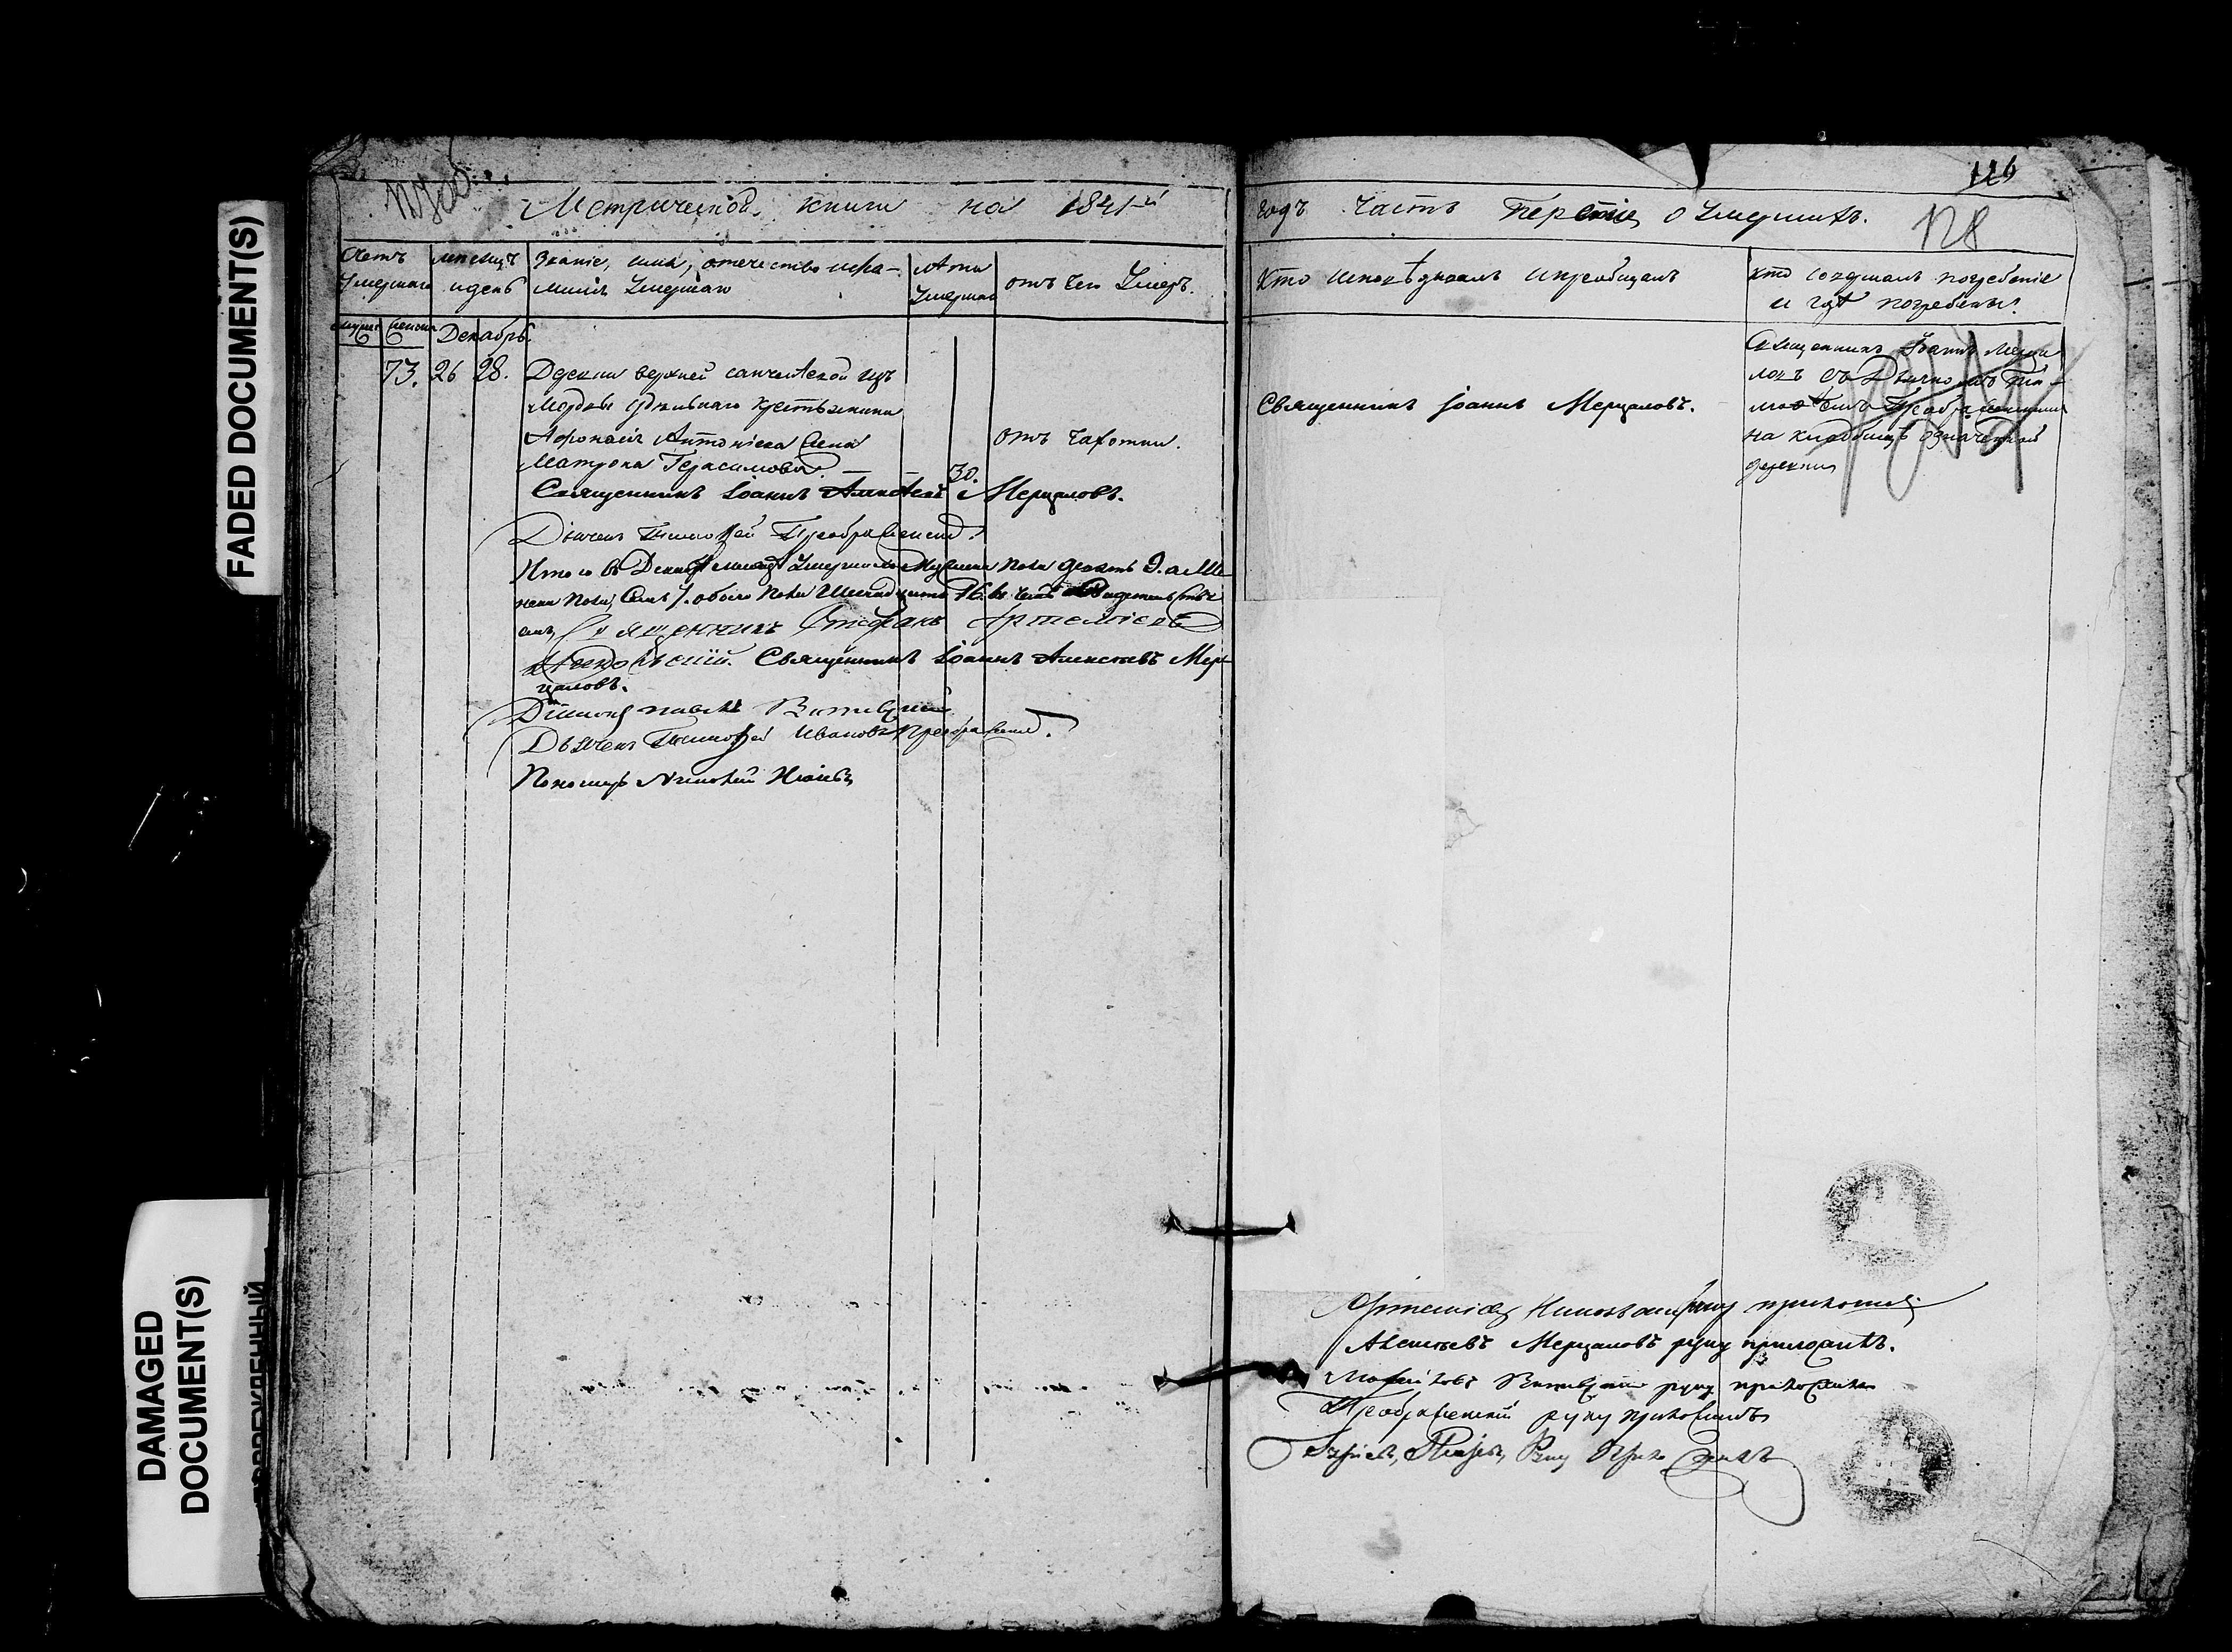 FADED DOCUMENT(S)
DAMAGED
DOCUMENT(S)
126
128
Метрической книги на 1841й
годъ часть третія о умершихъ.
Счетъ умершихъ
мѣсяцъ и день
Званіе, имя, отечество и фа-
милія умершаго
Лѣта умершаго
отъ чего умеръ.
Кто исповѣдывалъ и пріобщалъ
кто совершалъ погребеніе
и гдѣ погребены?
Декабрь.
73. 26 28. Деревни верхней санчелѣской изъ
Мордвы удѣльнаго крестьянина
Афонасія Антоніева жена
Матрона Герасимова 30.
отъ чахотки.
Священникъ Іоаннъ Мерцаловъ.
Священникъ Іоаннъ Мерца
ловъ съ Дьячкомъ Ти-
моѳеемъ Преображенскимъ
на кладбищѣ означенной
деревни
Священникъ Іоаннъ Алексѣевъ Мерцаловъ.
Дьячекъ Тимоѳей Преображенскій.
Итого въ Декабрѣ мѣсяцѣ умершихъ Мужеска пола девять 9. а Же
нска пола, семь 7. обоего пола Шестнадцать 16. въ чемъ и свидетельству
емъ Священникъ Стефанъ Артеміевъ
Священникъ Іоаннъ Алексѣевъ Мер
цаловъ.
Дьячекъ Тимоѳей Ивановъ Преображенскій.
Пономарь
Артеміевъ руку приложилъ
Алексѣевъ Мерцаловъ руку приложилъ.
руку приложилъ
Преображенскій руку приложилъ
руку приложилъ